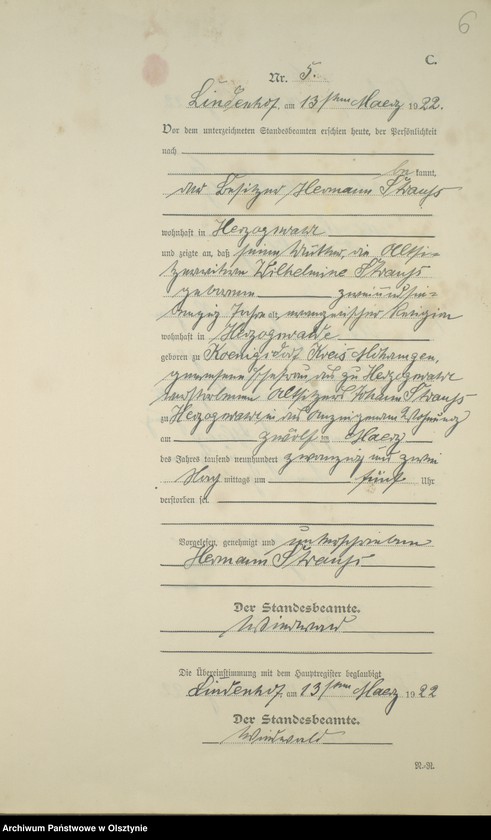 6
C.
Nr. 5.
Lindenhof, am 13ten Maerz 1922.
Vor dem unterzeichneten Standesbeamten erschien heute, der Persönlichkeit
nach
be kannt,
der Besitzer Hermann Strauß
wohnhaft in Herzogswalde
und zeigte an, daß seine Mutter, die Altsit-
zerwitwe Wilhelmine Strauß
geborene zweiundsie-
benzig Jahre alt, evangelischer Religion
wohnhaft in Herzogswalde
geboren zu Koenigsdorf Kreis Mohrungen,
gewesene Ehefrau des zu Herzogswalde
verstorbenen Altsitzers Johann Strauß
zu Herzogswalde in des Anzeigenden Wohnung
am zwölf ten Maerz
des Jahres tausend neunhundert zwanzig und zwei
Nach mittags um fünf Uhr
verstorben sei.
Vorgelesen, genehmigt und unterschrieben
Hermann Strauß
Der Standesbeamte.
Die Übereinstimmung mit dem Hauptregister beglaubigt
Lindenhof, am 13ten Maerz 1922
Der Standesbeamte.
Archiwum Państwowe w Olsztynie